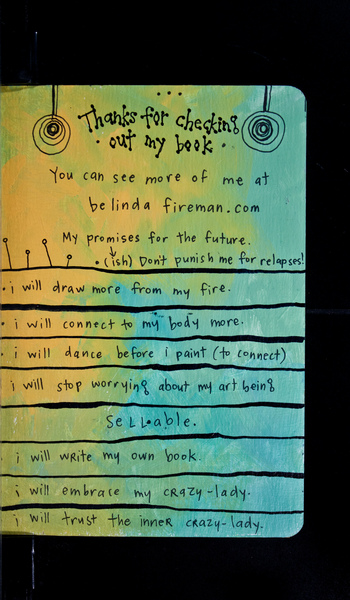 Thanks for checking
out my book.
You can see more of me at
belinda fireman.com
My promises for the future.
• (ish) Don't punish me for relapses!
• i will draw more from my fire.
• i will connect to my body more.
• i will dance before i paint (to connect)
i will stop worrying about my art being
SeLLable.
i will write my own book.
i will embrace my crazy-lady.
i will trust the inner crazy-lady.